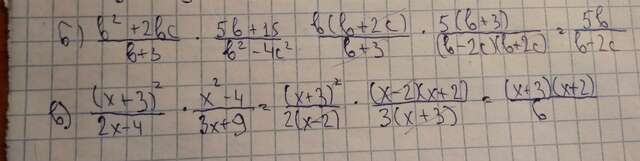 б) (b² + 2bc)/(b+3) · (5b + 15)/(b² - 4c²) (b(b+2c))/(b+3) · (5(b+3))/((b-2c)(b+2c)) = 5b/(b-2c)
в) (x+3)²/(2x-4) · (x² - 4)/(3x+9) = (x+3)²/(2(x-2)) · ((x-2)(x+2))/(3(x+3)) = ((x+3)(x+2))/6